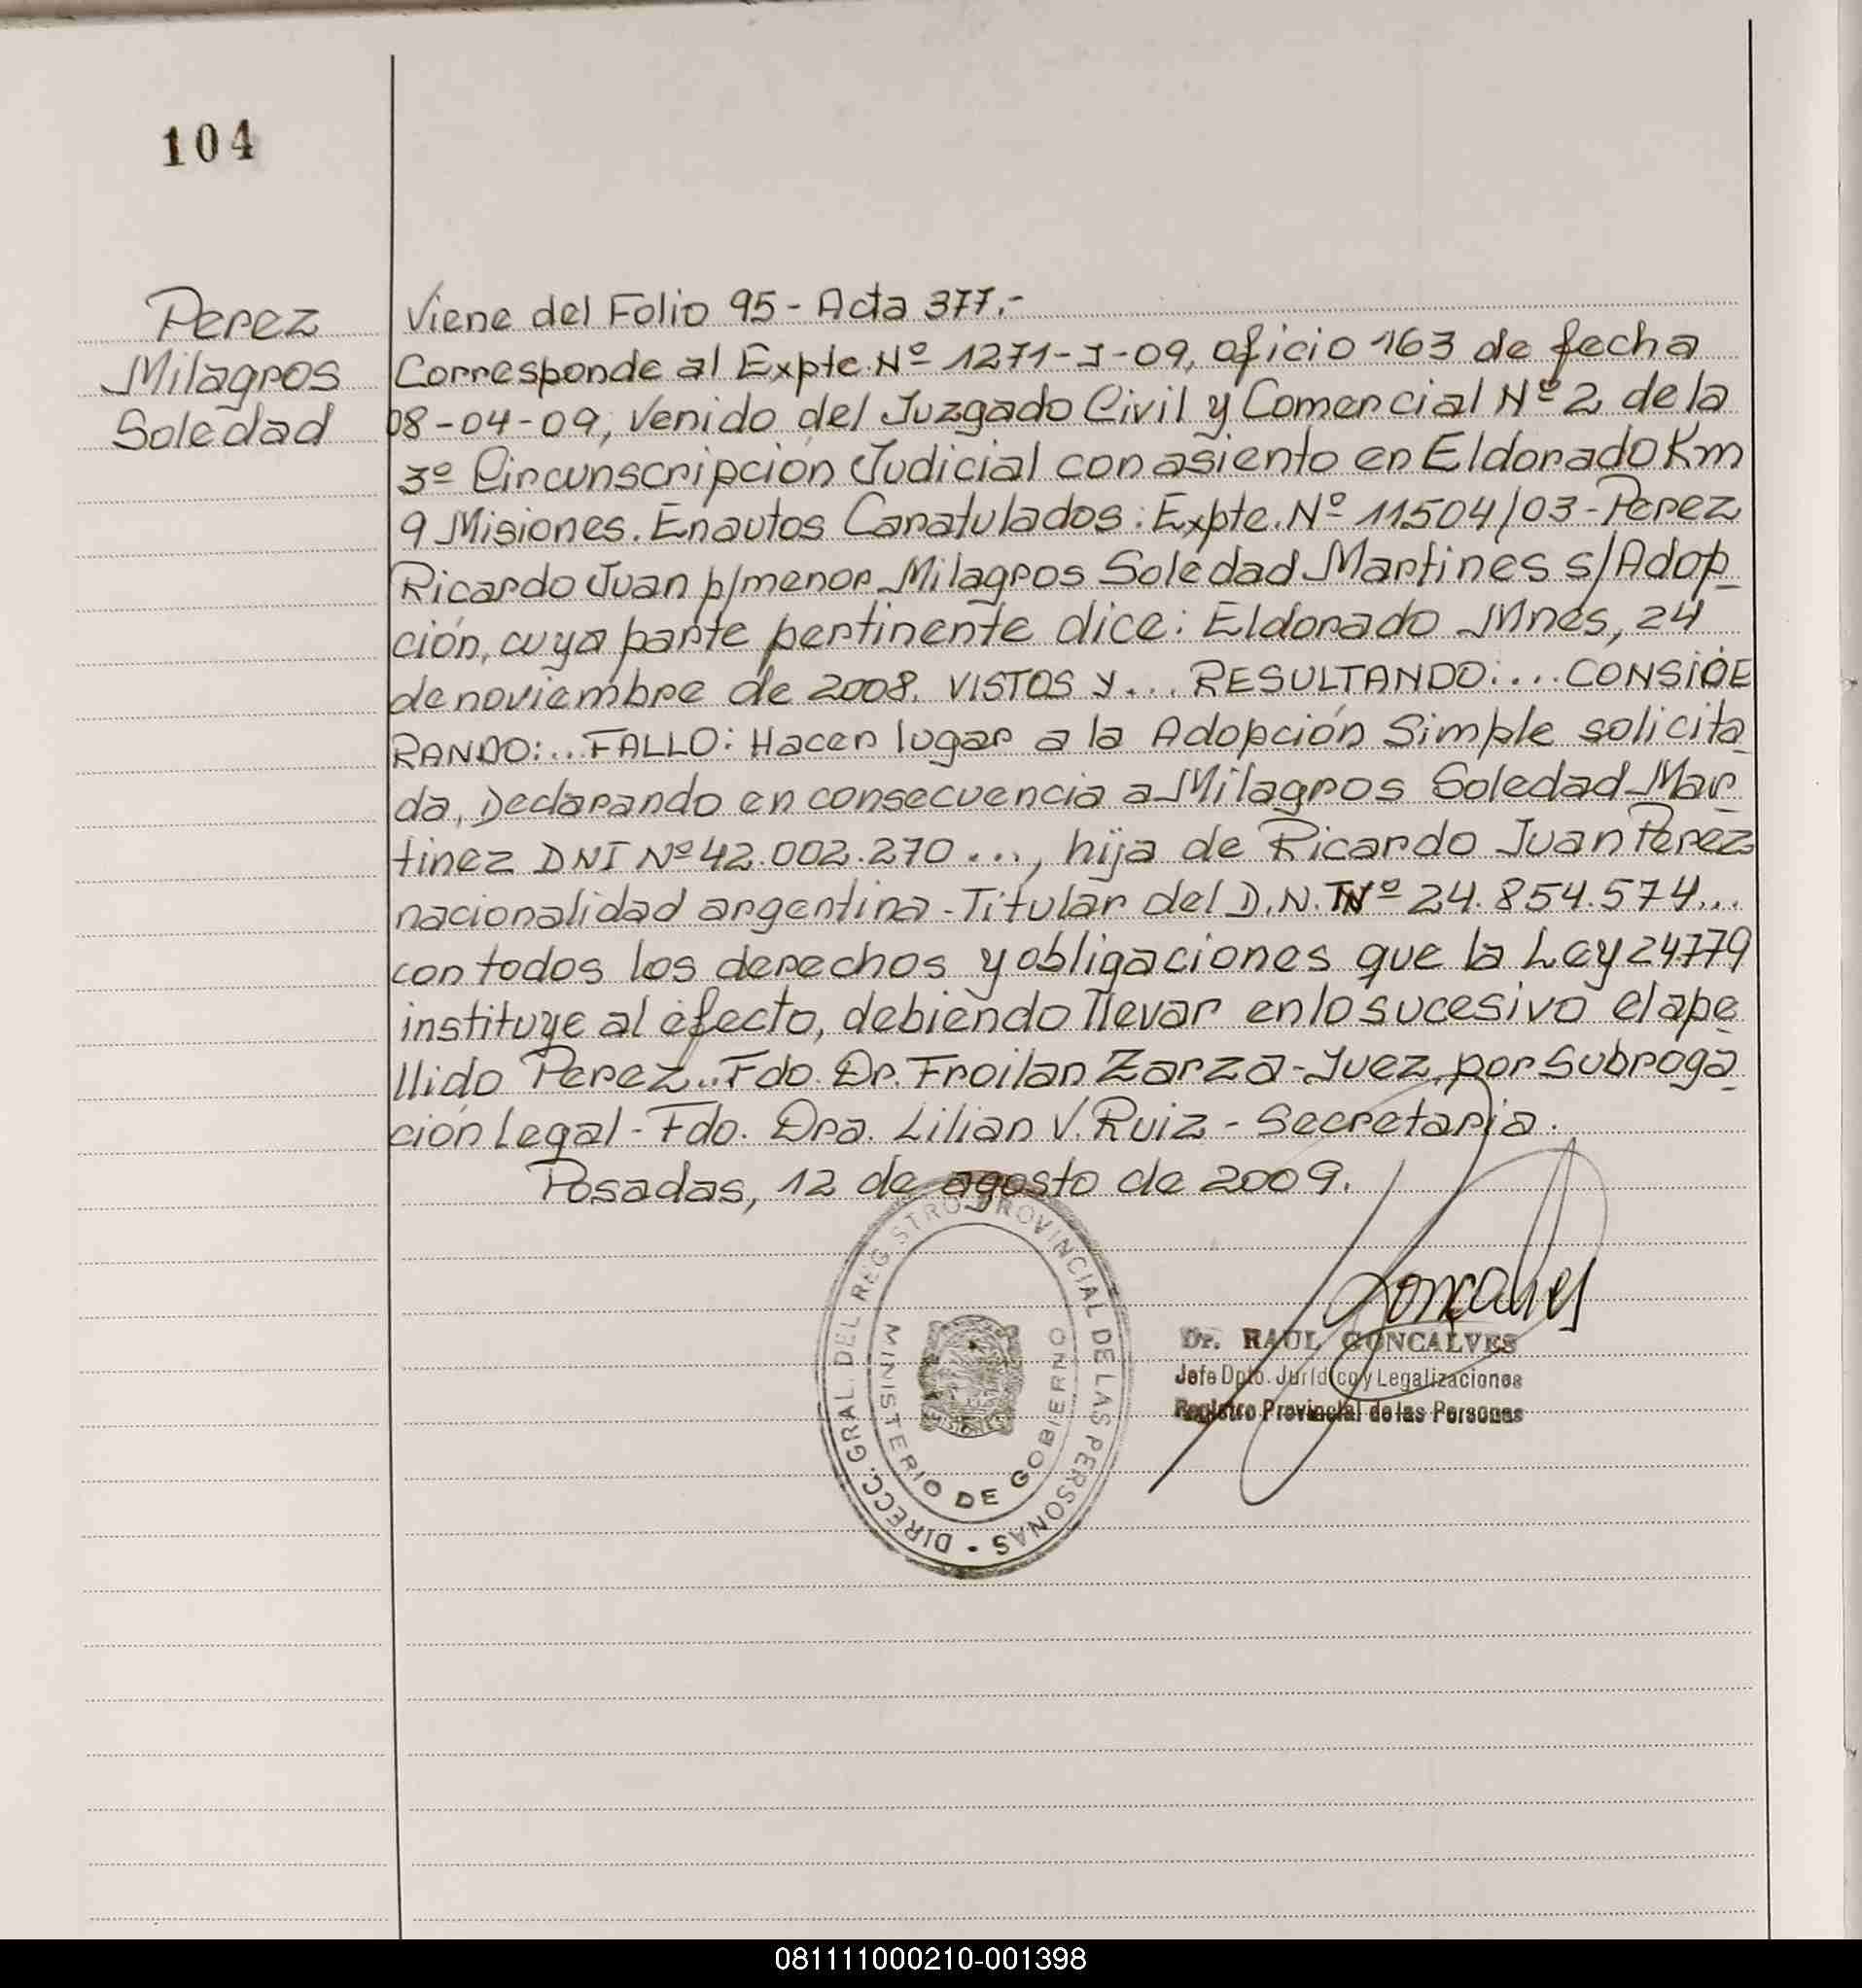 104
Perez
Milagros
Soledad
Viene del Folio 95 - Acta 377.-
Corresponde al Expte Nº 1271-J-09, oficio 163 de fecha
08-04-09, venido del Juzgado Civil y Comercial Nº 2 de la
3º Circunscripción Judicial con asiento en Eldorado Km
9 Misiones. En autos Caratulados: Expte. Nº 11504/03 - Perez
Ricardo Juan p/menor Milagros Soledad Martines s/Adop
ción, cuya parte pertinente dice: Eldorado Mnes, 24
de noviembre de 2008. VISTOS y... RESULTANDO:.... CONSIDE
RANDO:... FALLO: Hacer lugar a la Adopción Simple solicita
da, Declarando en consecuencia a Milagros Soledad Mar
tinez DNI Nº 42.002.270 ..., hija de Ricardo Juan Perez
nacionalidad argentina - Titular del D.N.I Nº 24.854.574...
con todos los derechos y obligaciones que la Ley 24779
instituye al efecto, debiendo llevar en lo sucesivo el ape
llido Perez... Fdo. Dr. Froilan Zarza - Juez, por Subroga
ción Legal - Fdo. Dra. Lilian V. Ruiz - Secretaria.
Posadas, 12 de agosto de 2009.
DIRECC. GRAL. DEL REGISTRO PROVINCIAL DE LAS PERSONAS
MINISTERIO DE GOBIERNO
MISIONES
Goncalves
Dr. RAUL GONCALVES
Jefe Dpto. Jurídico y Legalizaciones
Registro Provincial de las Personas
081111000210-001398